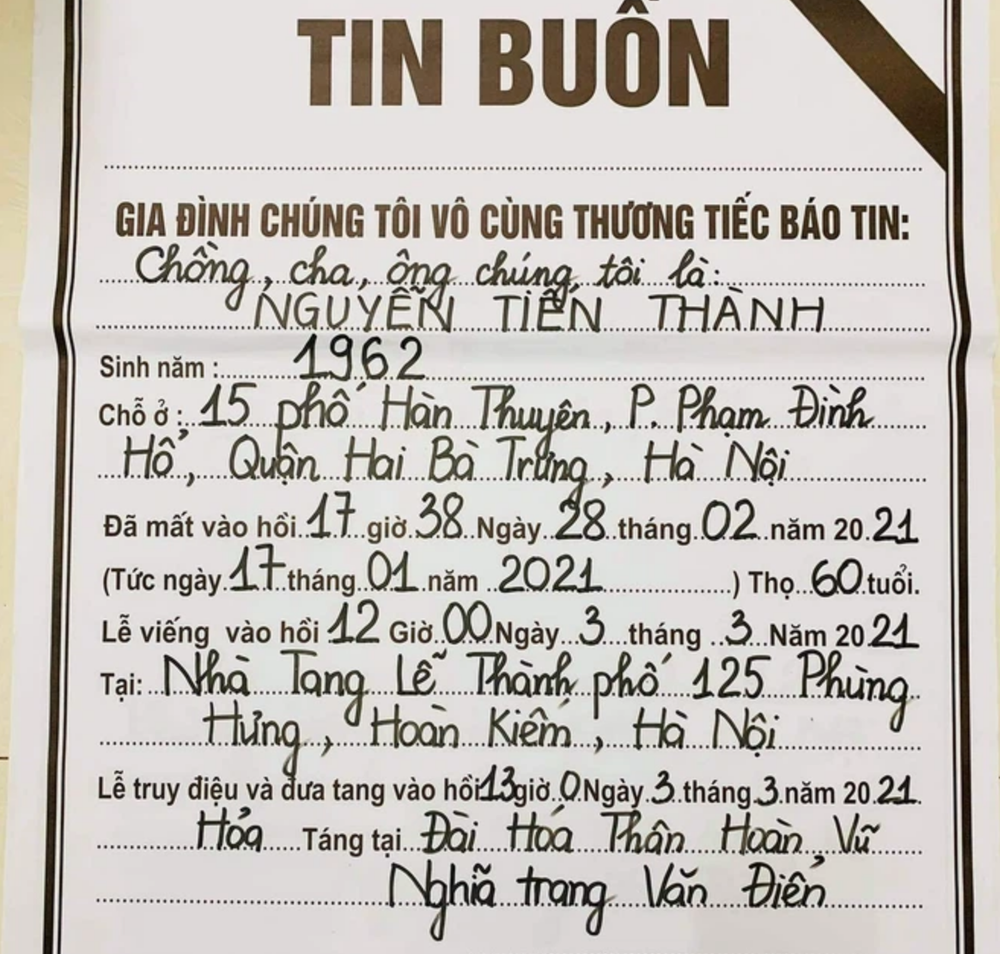 TIN BUỒN
GIA ĐÌNH CHÚNG TÔI VÔ CÙNG THƯƠNG TIẾC BÁO TIN:
Chồng, cha, ông chúng tôi là:
NGUYỄN TIẾN THÀNH
Sinh năm : 1962
Chỗ ở : 15 phố Hàn Thuyên, P. Phạm Đình
Hổ, Quận Hai Bà Trưng, Hà Nội
Đã mất vào hồi 17 giờ 38 Ngày 28 tháng 02 năm 20 21
(Tức ngày 17 tháng 01 năm 2021 ) Thọ 60 tuổi.
Lễ viếng vào hồi 12 Giờ 00 Ngày 3 tháng 3 Năm 20 21
Tại: Nhà Tang Lễ Thành phố 125 Phùng
Hưng, Hoàn Kiếm, Hà Nội
Lễ truy điệu và đưa tang vào hồi 13 giờ 0 Ngày 3 tháng 3 năm 20 21.
Hỏa Táng tại Đài Hóa Thân Hoàn Vũ
Nghĩa trang Văn Điển